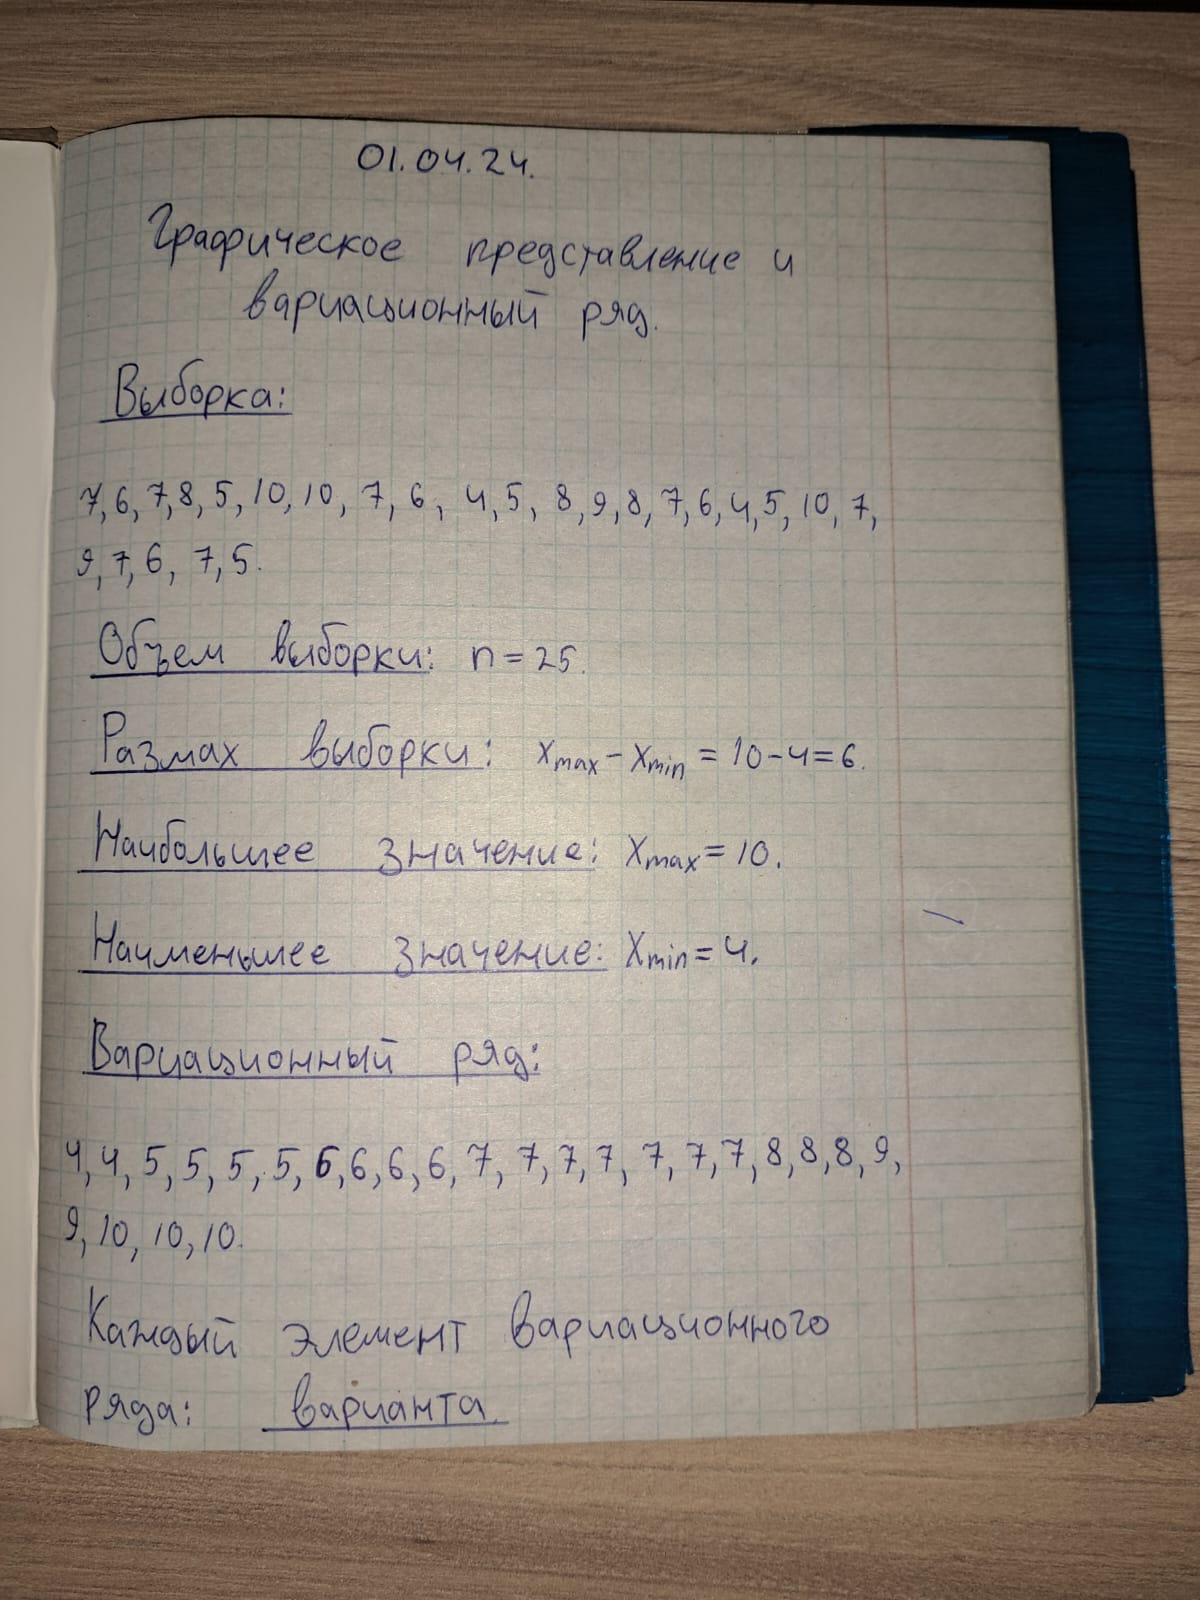 01.04.24.
Графическое представление и
вариационный ряд.
Выборка:
7, 6, 7, 8, 5, 10, 10, 7, 6, 4, 5, 8, 9, 8, 7, 6, 4, 5, 10, 7,
9, 7, 6, 7, 5.
Объем выборки: n = 25.
Размах выборки: xmax - xmin = 10 - 4 = 6.
Наибольшее значение: xmax = 10.
Наименьшее значение: xmin = 4.
Вариационный ряд:
4, 4, 5, 5, 5, 5, 6, 6, 6, 6, 7, 7, 7, 7, 7, 7, 7, 8, 8, 8, 9,
9, 10, 10, 10.
Каждый элемент вариационного
ряда: варианта.